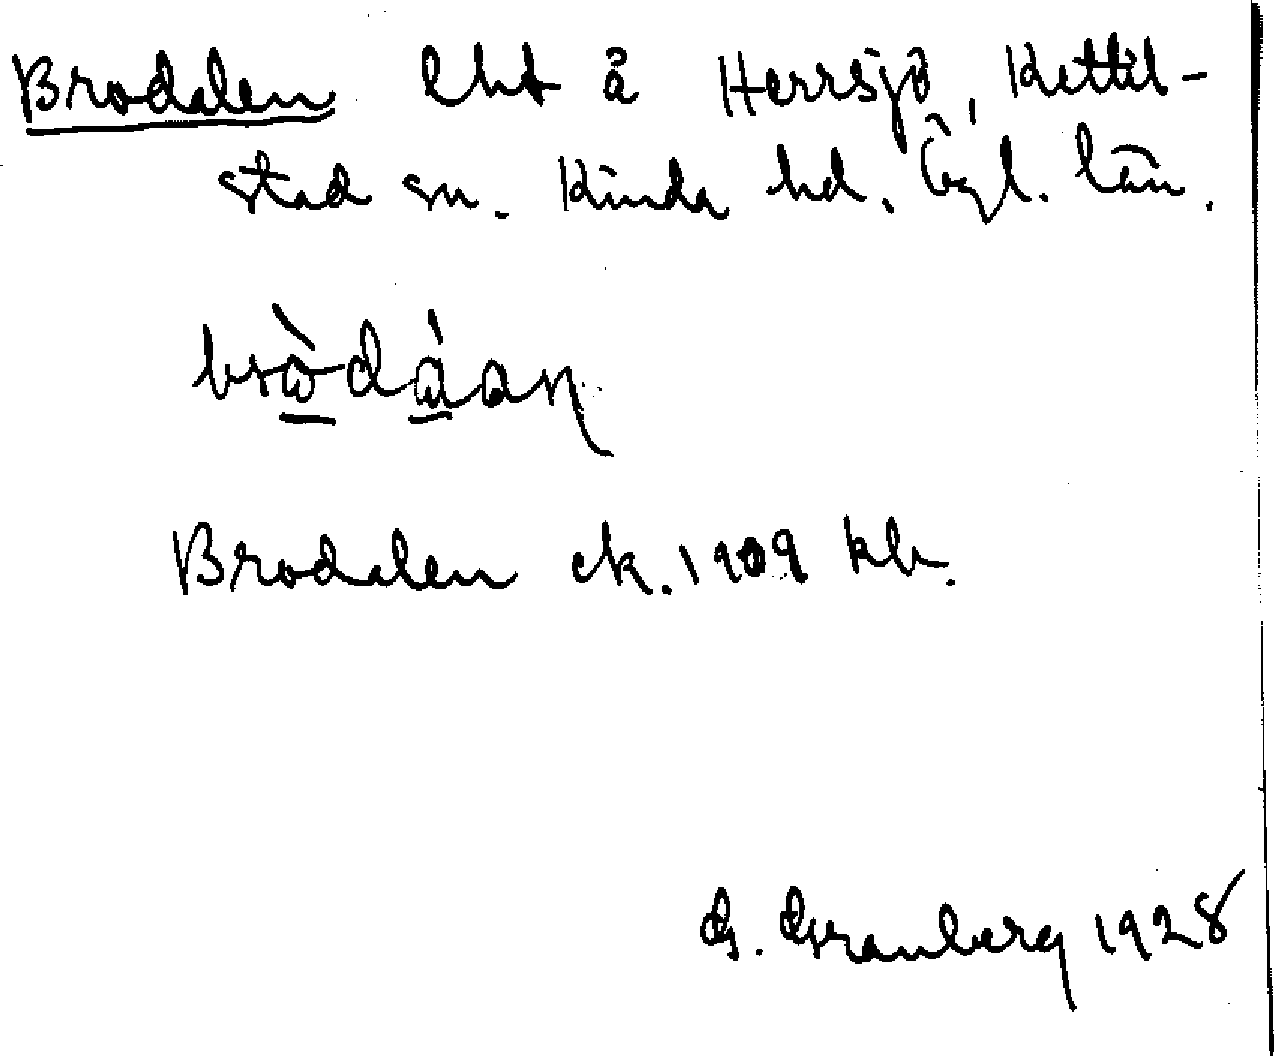 Brodalen lht å Herrsjö, Kettil-
stad sn. Kinda hd. Ögl. län.
Brodalen ek. 1909 kb.
G. Granberg 1928